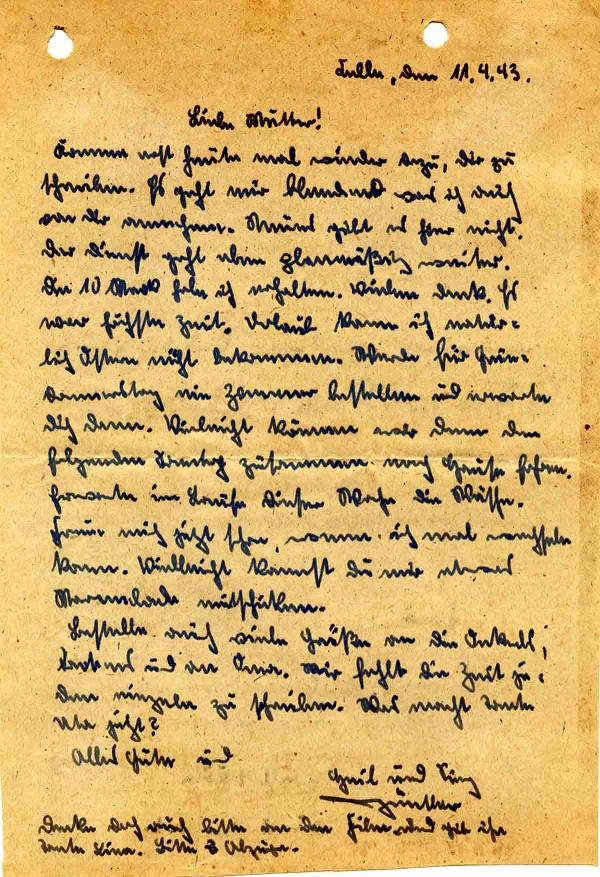 Tulln, den 11.4.43.
Liebe Mutter!
Komme erst heute mal wieder dazu, Dir zu
schreiben. Es geht mir blendend was ich auch
von Dir annehme. Neues gibt es hier nicht.
Der Dienst geht eben planmäßig weiter.
Die 10 Mark habe ich erhalten. Vielen Dank. Es
war höchste Zeit. Urlaub kann ich natür-
lich Ostern nicht bekommen. Werde für Grün-
donnerstag ein Zimmer bestellen und erwarte
Dich dann. Vielleicht können wir dann den
folgenden Sonntag zusammen nach Hause fahren.
Erwarte im Laufe dieser Woche die Wäsche.
Freue mich jetzt schon, wenn ich mal wechseln
kann. Vielleicht kannst Du mir etwas
Marmelade mitschicken.
Bestelle auch viele Grüße an die Onkels,
Tantens und an Oma. Mir fehlt die Zeit je-
dem einzeln zu schreiben. Was macht Tante
Uta jetzt?
Alles Gute und
Heil und Sieg
Günther
Denke doch auch bitte an den Film und gib ihn
Tante Lina. Bitte 3 Abzüge.